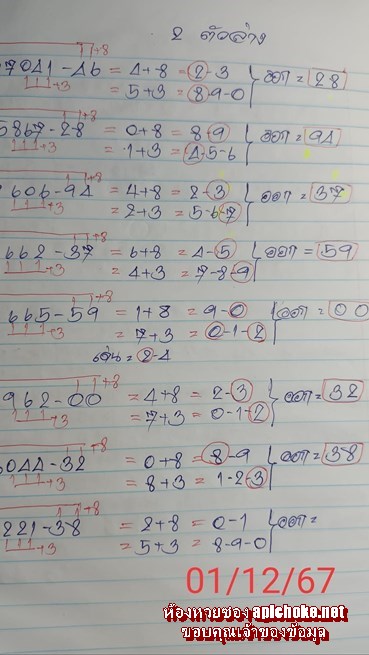 2 ตัวล่าง
+8
7041-46 = 4+8 = 2-3
+3 = 5+3 = 8-9-0 ออก = 28
+8
5867-28 = 0+8 = 8-9
+3 = 1+3 = 4-5-6 ออก = 94
+8
606-94 = 4+8 = 2-3
+3 = 2+3 = 5-6-7 ออก = 37
+8
662-37 = 6+8 = 4-5
+3 = 4+3 = 7-8-9 ออก = 59
+8
665-59 = 1+8 = 9-0
+3 = 7+3 = 0-1-2 ออก = 00
เด่น = 2-4
+8
962-00 = 4+8 = 2-3
+3 = 7+3 = 0-1-2 ออก = 32
+8
044-32 = 0+8 = 8-9
+3 = 8+3 = 1-2-3 ออก = 38
+8
221-38 = 2+8 = 0-1
+3 = 5+3 = 8-9-0 ออก =
01/12/67
ห้องหวยซอง apichoke.net
ขอบคุณเจ้าของข้อมูล